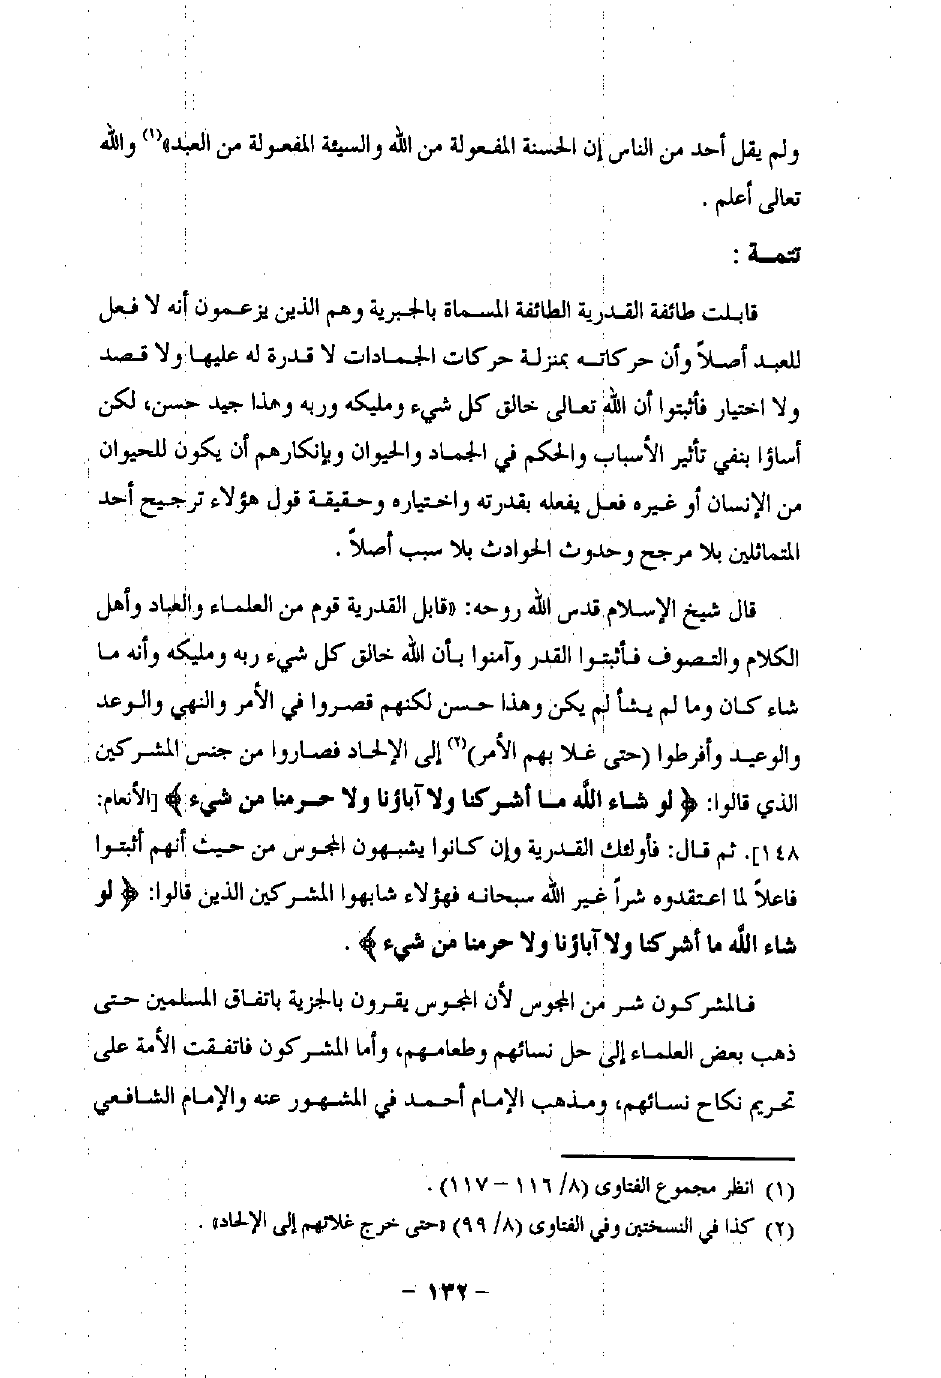 ولم يقل أحد من الناس إن الحسنة المفعولة من الله والسيئة المفعولة من العبد»(١) والله
تعالى أعلم .
تتمة :
قابلت طائفة القدرية الطائفة المسماة بالجبرية وهم الذين يزعمون أنه لا فعل
للعبد أصلاً وأن حركاته بمنزلة حركات الجمادات لا قدرة له عليها ولا قصد
ولا اختيار فأثبتوا أن الله تعالى خالق كل شيء ومليكه وربه وهذا جيد حسن، لكن
أساؤا بنفي تأثير الأسباب والحكم في الجماد والحيوان وبإنكارهم أن يكون للحيوان
من الإنسان أو غيره فعل يفعله بقدرته واختياره وحقيقة قول هؤلاء ترجيح أحد
المتماثلين بلا مرجح وحدوث الحوادث بلا سبب أصلاً .
قال شيخ الإسلام قدس الله روحه: «قابل القدرية قوم من العلماء والعباد وأهل
الكلام والتصوف فأثبتوا القدر وآمنوا بأن الله خالق كل شيء ربه ومليكه وأنه ما
شاء كان وما لم يشأ لم يكن وهذا حسن لكنهم قصروا في الأمر والنهي والوعد
والوعيد وأفرطوا (حتى غلا بهم الأمر)(٢) إلى الإلحاد فصاروا من جنس المشركين
الذي قالوا: ﴿ لو شاء الله ما أشركنا ولا آباؤنا ولا حرمنا من شيء ﴾ [الأنعام:
١٤٨]. ثم قال: فأولئك القدرية وإن كانوا يشبهون المجوس من حيث أنهم أثبتوا
فاعلاً لما اعتقدوه شراً غير الله سبحانه فهؤلاء شابهوا المشركين الذين قالوا: ﴿ لو
شاء الله ما أشركنا ولا آباؤنا ولا حرمنا من شيء ﴾ .
فالمشركون شر من المجوس لأن المجوس يقرون بالجزية باتفاق المسلمين حتى
ذهب بعض العلماء إلى حل نسائهم وطعامهم، وأما المشركون فاتفقت الأمة على
تحريم نكاح نسائهم، ومذهب الإمام أحمد في المشهور عنه والإمام الشافعي
(١) انظر مجموع الفتاوى (٨/ ١١٦ – ١١٧) .
(٢) كذا في النسختين وفي الفتاوى (٨/ ٩٩) «حتى خرج غلاتهم إلى الإلحاد» .
– ١٣٢ –